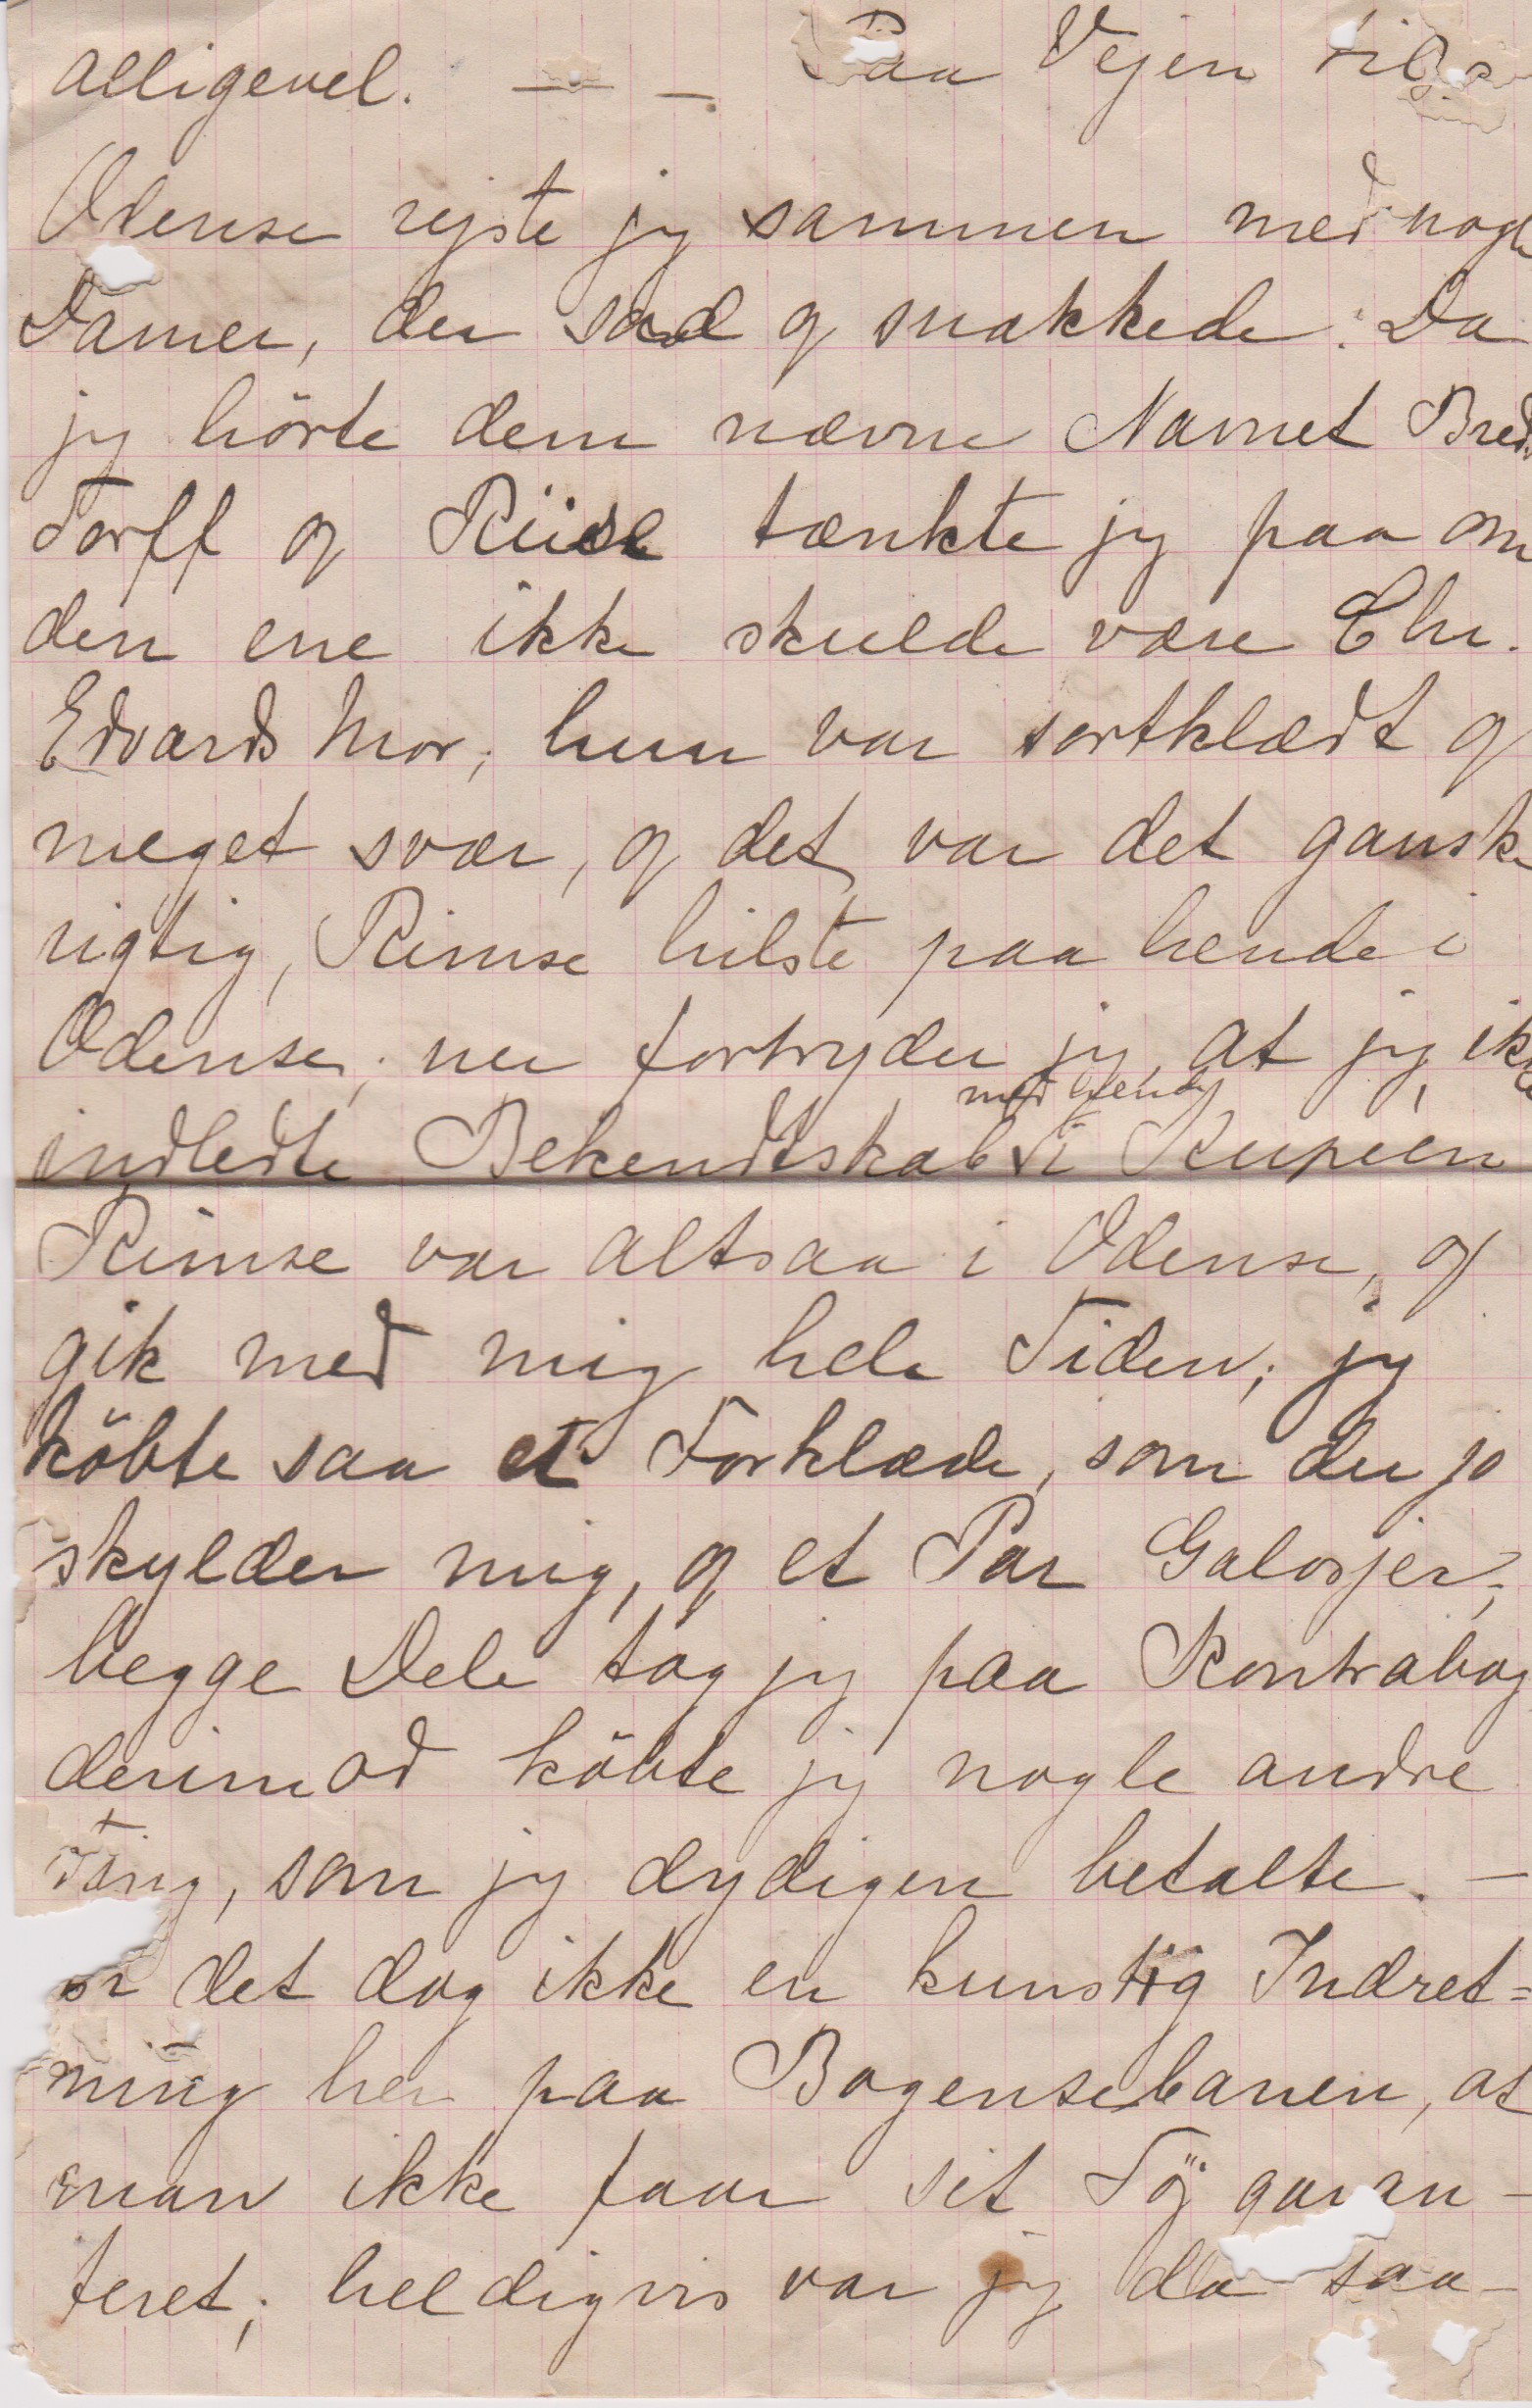 alligevel. — — Paa Vejen til
Odense rejste jeg sammen med nogle
Damer, der sad og snakkede. Da
jeg hörte dem nævne Navnet Breds
torff og Riise tænkte jeg paa om
den ene ikke skulde være Chr.
Edvards Mor; hun var sortklædt og
meget svær, og det var det ganske
rigtig, Rimse hilste paa hende i
Odense; nu fortryder jeg at jeg ikke
med hende
indledte Bekendtskab i Kupeen
Rimse var altsaa i Odense, og
gik med mig hele Tiden; jeg
köbte saa et Forklæde, som du jo
skylder mig, og et Par Galosjer;
begge Dele tog jeg paa Kontrabog
derimod köbte jeg nogle andre
Ting, som jeg dydigen betalte. —
er det dog ikke en kunstig Indret=
ning her paa Bogensebanen, at
man ikke faar sit Töj garan-
teret; heldigvis var jeg da saa-